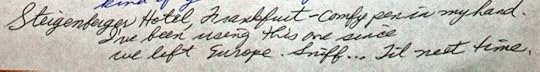 Steigenberger Hotel, Frankfurt - Comfy pen in my hand.
I've been using this one since
we left Europe. Sniff... Til next time.